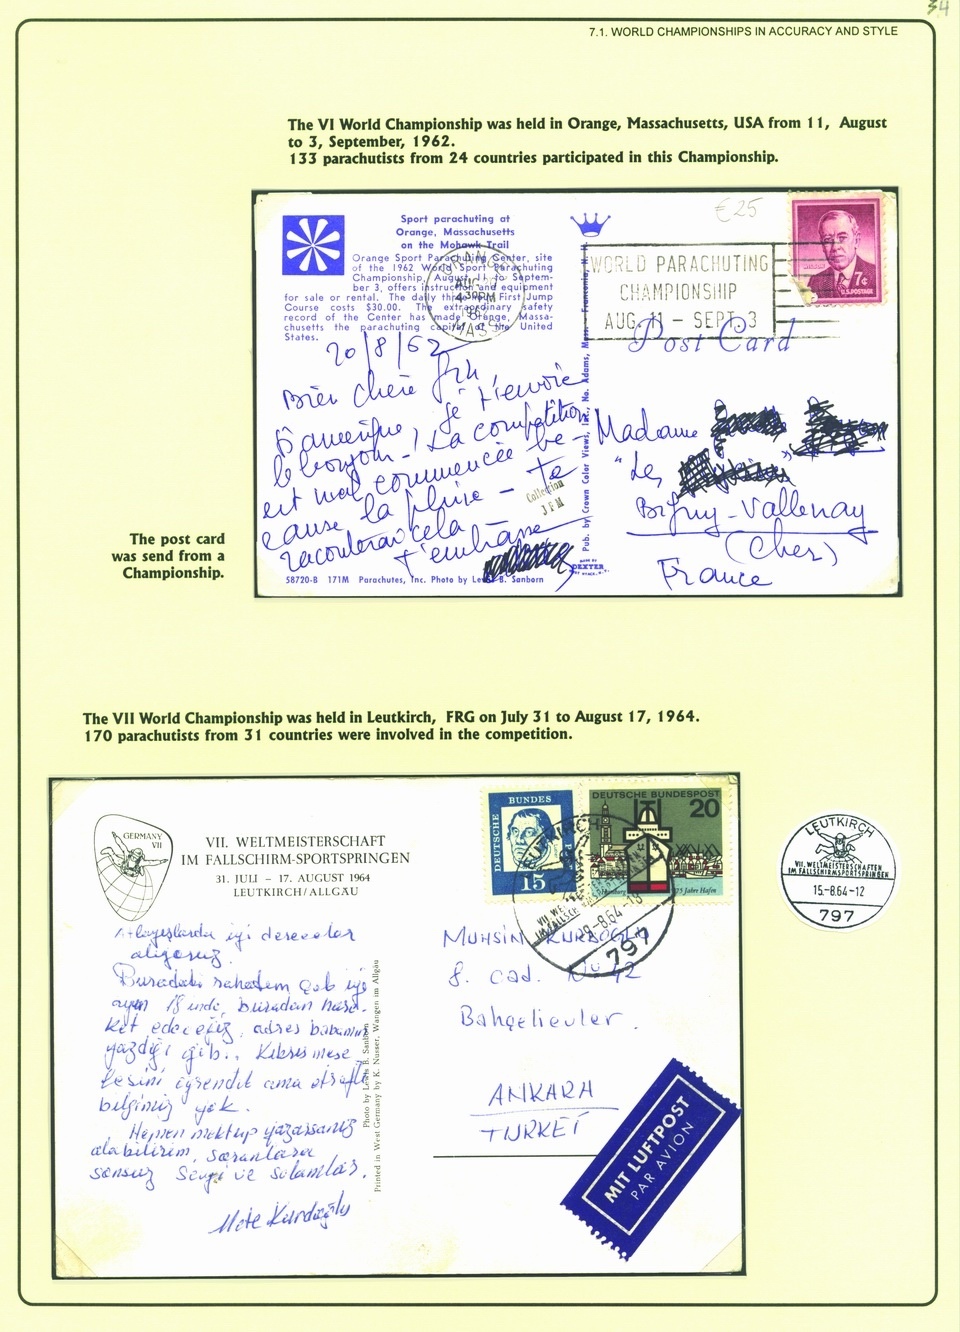 34
7.1. WORLD CHAMPIONSHIPS IN ACCURACY AND STYLE
The VI World Championship was held in Orange, Massachusetts, USA from 11, August
to 3, September, 1962.
133 parachutists from 24 countries participated in this Championship.
€25
Sport parachuting at
Orange, Massachusetts
on the Mohawk Trail
Orange Sport Parachuting Center, site
of the 1962 World Sport Parachuting
Championship, August 11 to Septem-
ber 3, offers instruction and equipment
for sale or rental. The daily First Jump
Course costs $30.00. The extraordinary safety
record of the Center has made Orange, Massa-
chusetts the parachuting capital of the United
States.
ORANGE
AUG
430PM
MASS
WORLD PARACHUTING
CHAMPIONSHIP
AUG. 11 – SEPT. 3
7¢
U.S. POSTAGE
Post Card
20/8/62
Bien chère
je t'envoie
d'amérique,
le bonjour – La compétition
est mal commencée
cause la pluie – te
raconterai cela
t'embrasse
Collection
JFM
Madame
"Les
Bigny-Vallenay
(Cher)
France
Pub. by Crown Color Views, Inc. No. Adams, Mass.
MADE BY
DEXTER
WEST NYACK, N.Y.
S8720-B 171M Parachutes, Inc. Photo by Lewis B. Sanborn
The post card
was send from a
Championship.
The VII World Championship was held in Leutkirch, FRG on July 31 to August 17, 1964.
170 parachutists from 31 countries were involved in the competition.
GERMANY
VII
VII. WELTMEISTERSCHAFT
IM FALLSCHIRM-SPORTSPRINGEN
31. JULI – 17. AUGUST 1964
LEUTKIRCH/ALLGÄU
DEUTSCHE
BUNDES
15
DEUTSCHE BUNDESPOST
20
Hamburg
775 Jahre Hafen
LEUTKIRCH
-8.64-18
797
LEUTKIRCH
VII. WELTMEISTERSCHAFTEN
IM FALLSCHIRMSPORTSPRINGEN
15.-8.64-12
797
iyi dereceler
alıyoruz.
Buradaki rahatım çok iyi
ayın 18 inde, buradan hare-
ket edeceğiz, adres babamın
yazdığı gibi. Kıbrıs mese
lesini öğrendik ama etraflı
bilgimiz yok.
Hemen mektup yazarsanız
alabilirim,
sonsuz sevgi ve selamlar.
Mete Kurdoğlu
Photo by Lewis B. Sanborn
Printed in West Germany by K. Nusser, Wangen im Allgäu
MUHSİN KURDOĞLU
8. cad. No 42
Bahçelievler.
ANKARA
TURKEİ
MIT LUFTPOST
PAR AVION